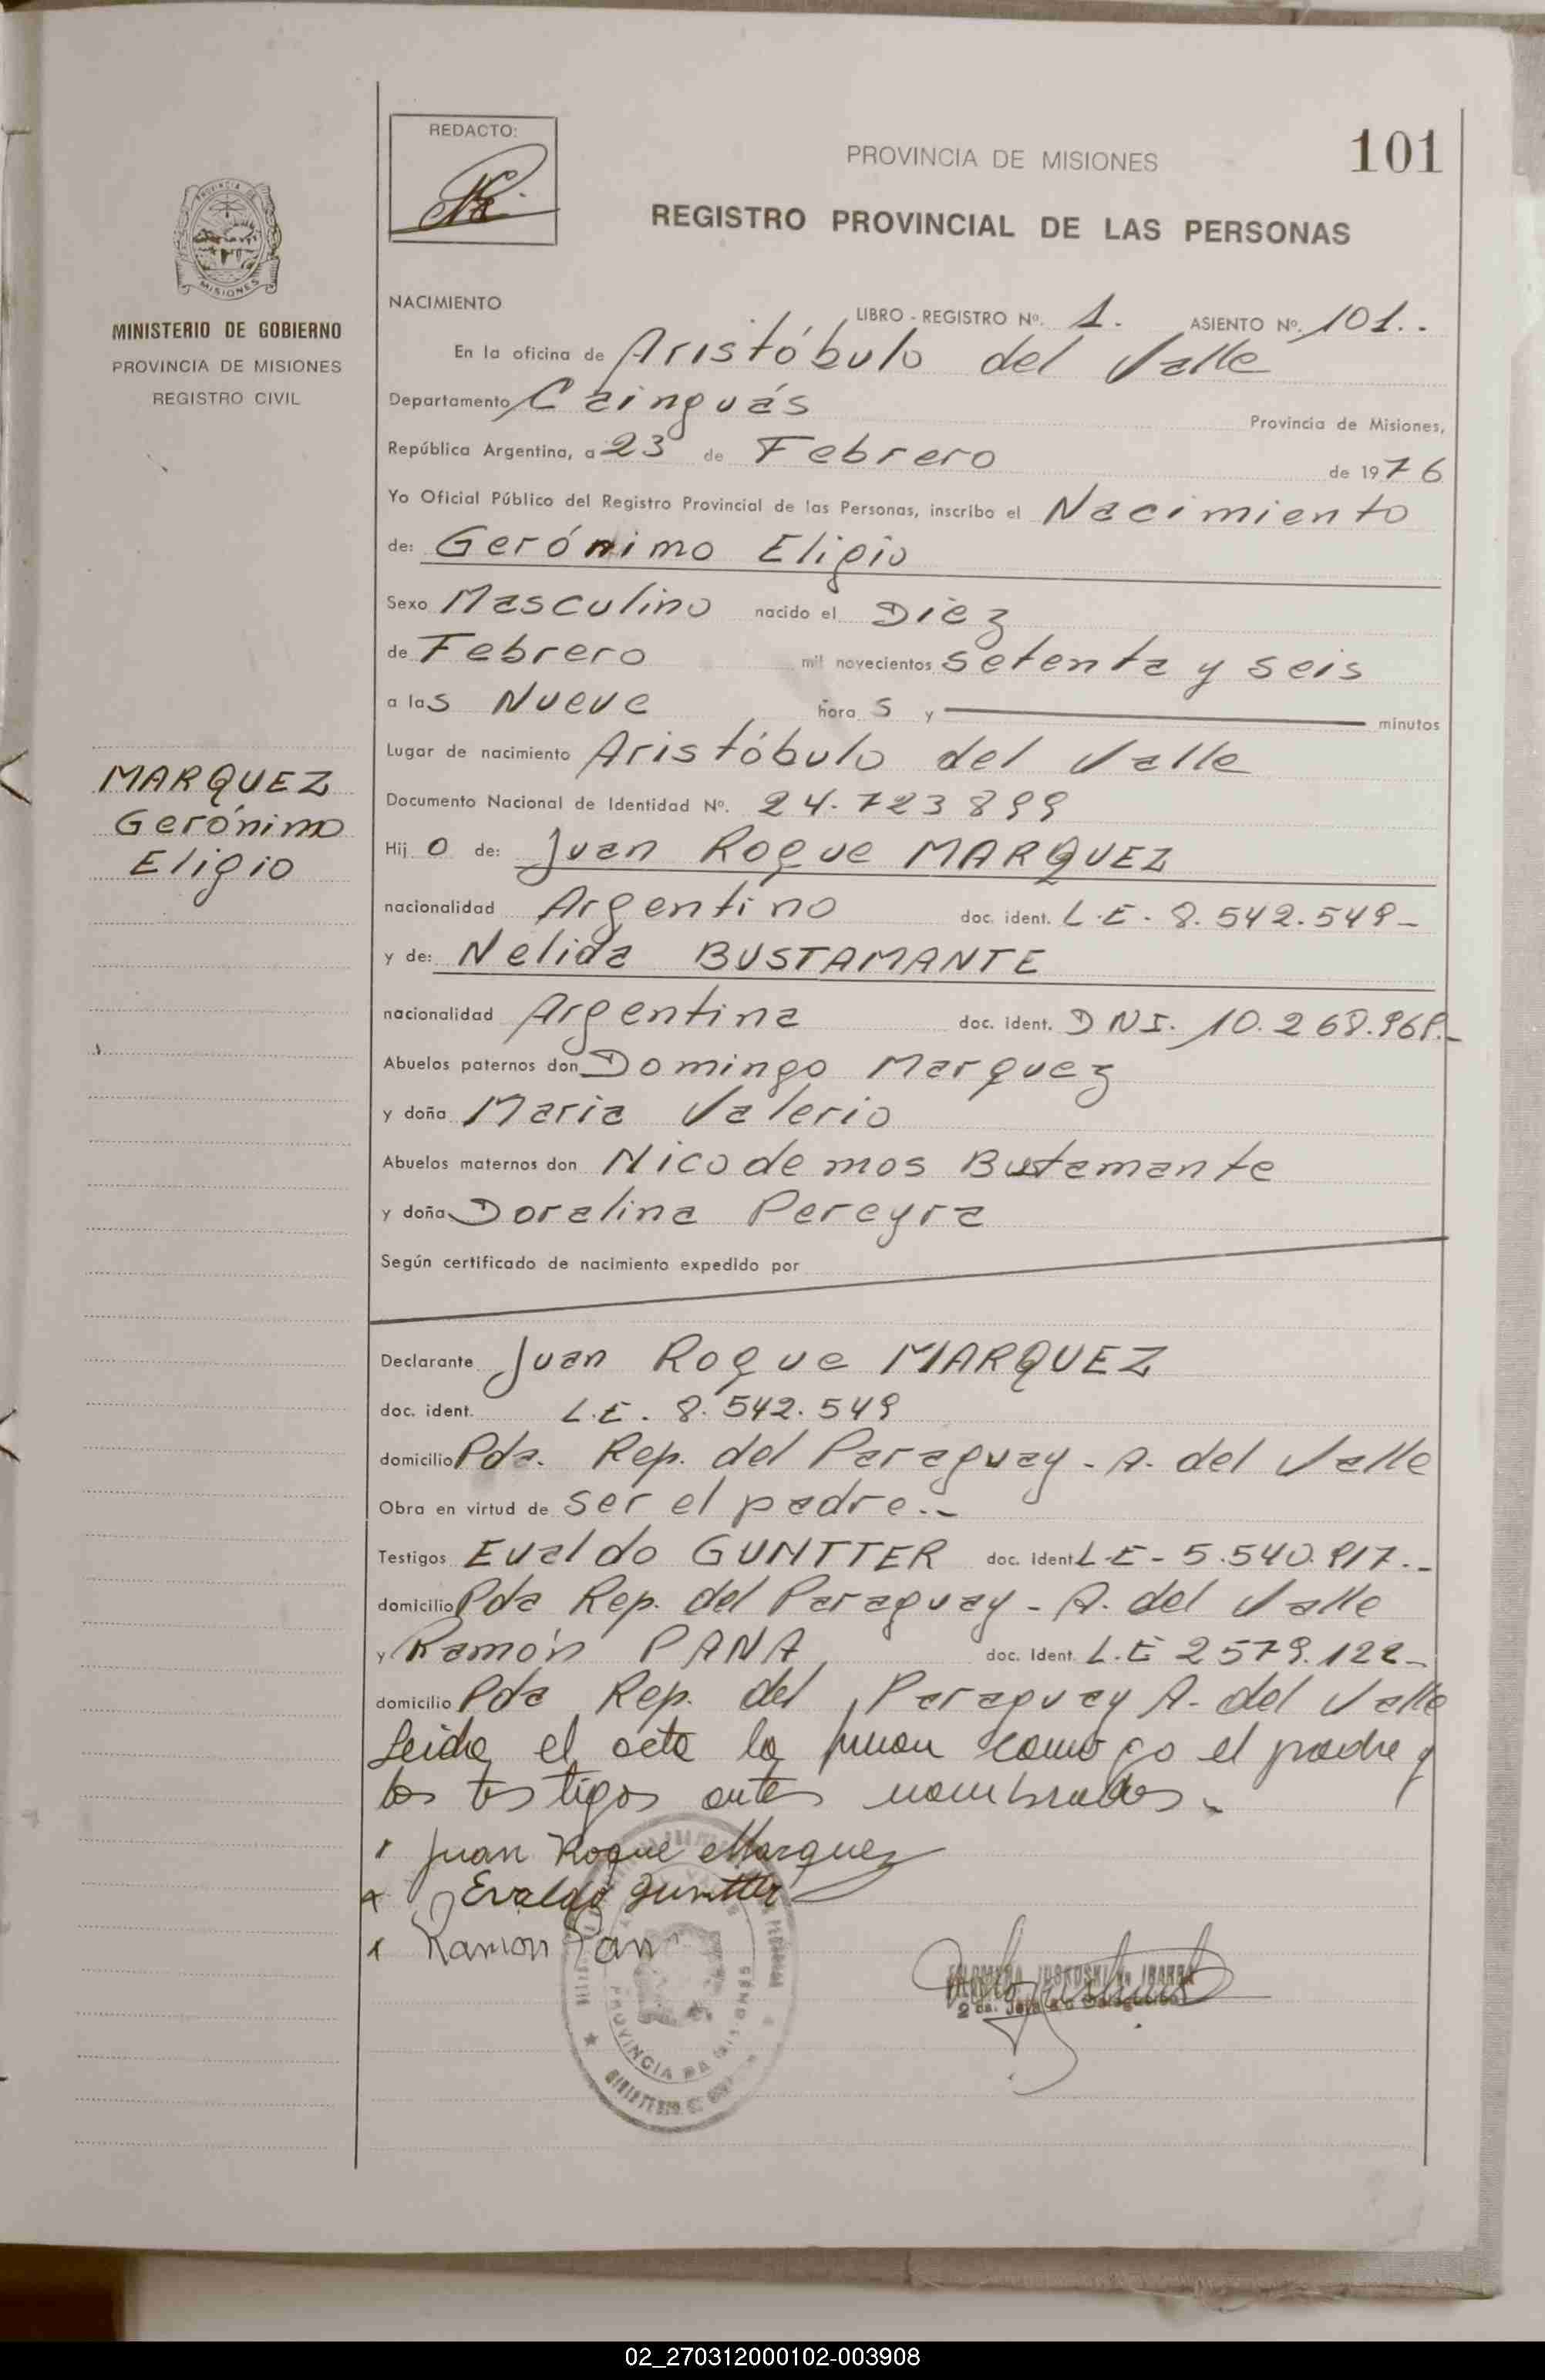 101
REDACTO:
PROVINCIA DE MISIONES
REGISTRO PROVINCIAL DE LAS PERSONAS
MISIONES
MINISTERIO DE GOBIERNO
PROVINCIA DE MISIONES
REGISTRO CIVIL
MARQUEZ
Gerónimo
Eligio
NACIMIENTO LIBRO - REGISTRO Nº. 1. ASIENTO Nº. 101..
En la oficina de Aristóbulo del Valle
Departamento Cainguás Provincia de Misiones,
República Argentina, a 23 de Febrero de 1976
Yo Oficial Público del Registro Provincial de las Personas, inscribo el Nacimiento
de: Gerónimo Eligio
Sexo Masculino nacido el Diez
de Febrero mil novecientos setenta y seis
a las Nueve horas y minutos
Lugar de nacimiento Aristóbulo del Valle
Documento Nacional de Identidad Nº. 24.723899
Hijo de: Juan Roque MARQUEZ
nacionalidad Argentino doc. ident. L.E. 8.542.549-
y de: Nelida BUSTAMANTE
nacionalidad Argentina doc. ident. DNI.
Abuelos paternos don Domingo Marquez
y doña Maria Valerio
Abuelos maternos don Nicodemos Bustamante
y doña Doralina Pereyra
Según certificado de nacimiento expedido por
Declarante Juan Roque MARQUEZ
doc. ident. L.E. 8.542.549
domicilio Pda. Rep. del Paraguay - A. del Valle
Obra en virtud de ser el padre.-
Testigos Evaldo GUNTTER doc. Ident L.E - 5.540.917.-
domicilio Pda Rep. del Paraguay - A. del Valle
y Ramón PANA doc. Ident. L.E 2579.122-
domicilio Pda Rep. del Paraguay A. del Valle
Leida el acta la firman como yo el padre y
los testigos antes nombrados.
Juan Roque Marquez
Evaldo Guntter
Ramon Pan
PROVINCIA DE MISIONES
02_270312000102-003908